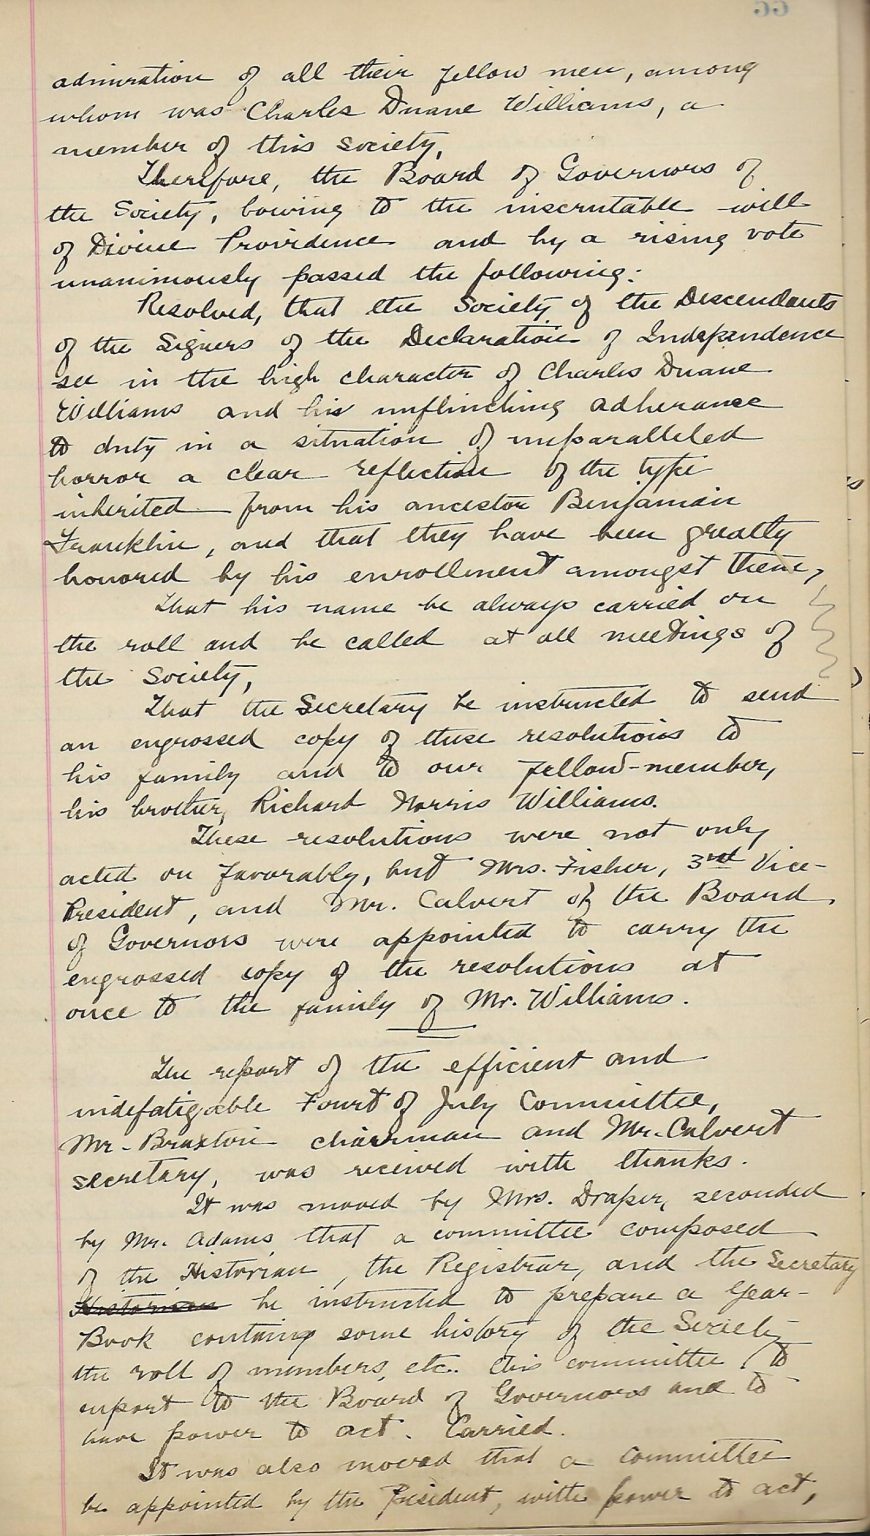 55
admiration of all their fellow men, among
whom was Charles Duane Williams, a
member of this Society,
Therefore, the Board of Governors of
the Society, bowing to the inscrutable will
of Divine Providence and by a rising vote
unanimously passed the following:
Resolved, that the Society of the Descendants
of the Signers of the Declaration of Independence
see in the high character of Charles Duane
Williams and his unflinching adherance
to duty in a situation of unparalleled
horror a clear reflection of the type
inherited from his ancestor Benjamin
Franklin, and that they have been greatly
honored by his enrollment amongst them,
That his name be always carried on
the roll and be called at all meetings of
the Society,
That the Secretary be instructed to send
an engrossed copy of these resolutions to
his family and to our fellow-member,
his brother, Richard Norris Williams.
These resolutions were not only
acted on favorably, but Mrs. Fisher, 3rd Vice-
President, and Mr. Calvert of the Board
of Governors were appointed to carry the
engrossed copy of the resolutions at
once to the family of Mr. Williams.
The report of the efficient and
indefatigable Fourt of July Committee,
Mr. Braxton chairman and Mr. Calvert
secretary, was received with thanks.
It was moved by Mrs. Draper, seconded
by Mr. Adams that a committee composed
of the Historian, the Registrar, and the Secretary
Historian be instructed to prepare a Year-
Book containg some history of the Society
the roll of members, etc. this committee to
report to the Board of Governors and to
have power to act. Carried.
It was also moved that a committee
be appointed by the President, with power to act,